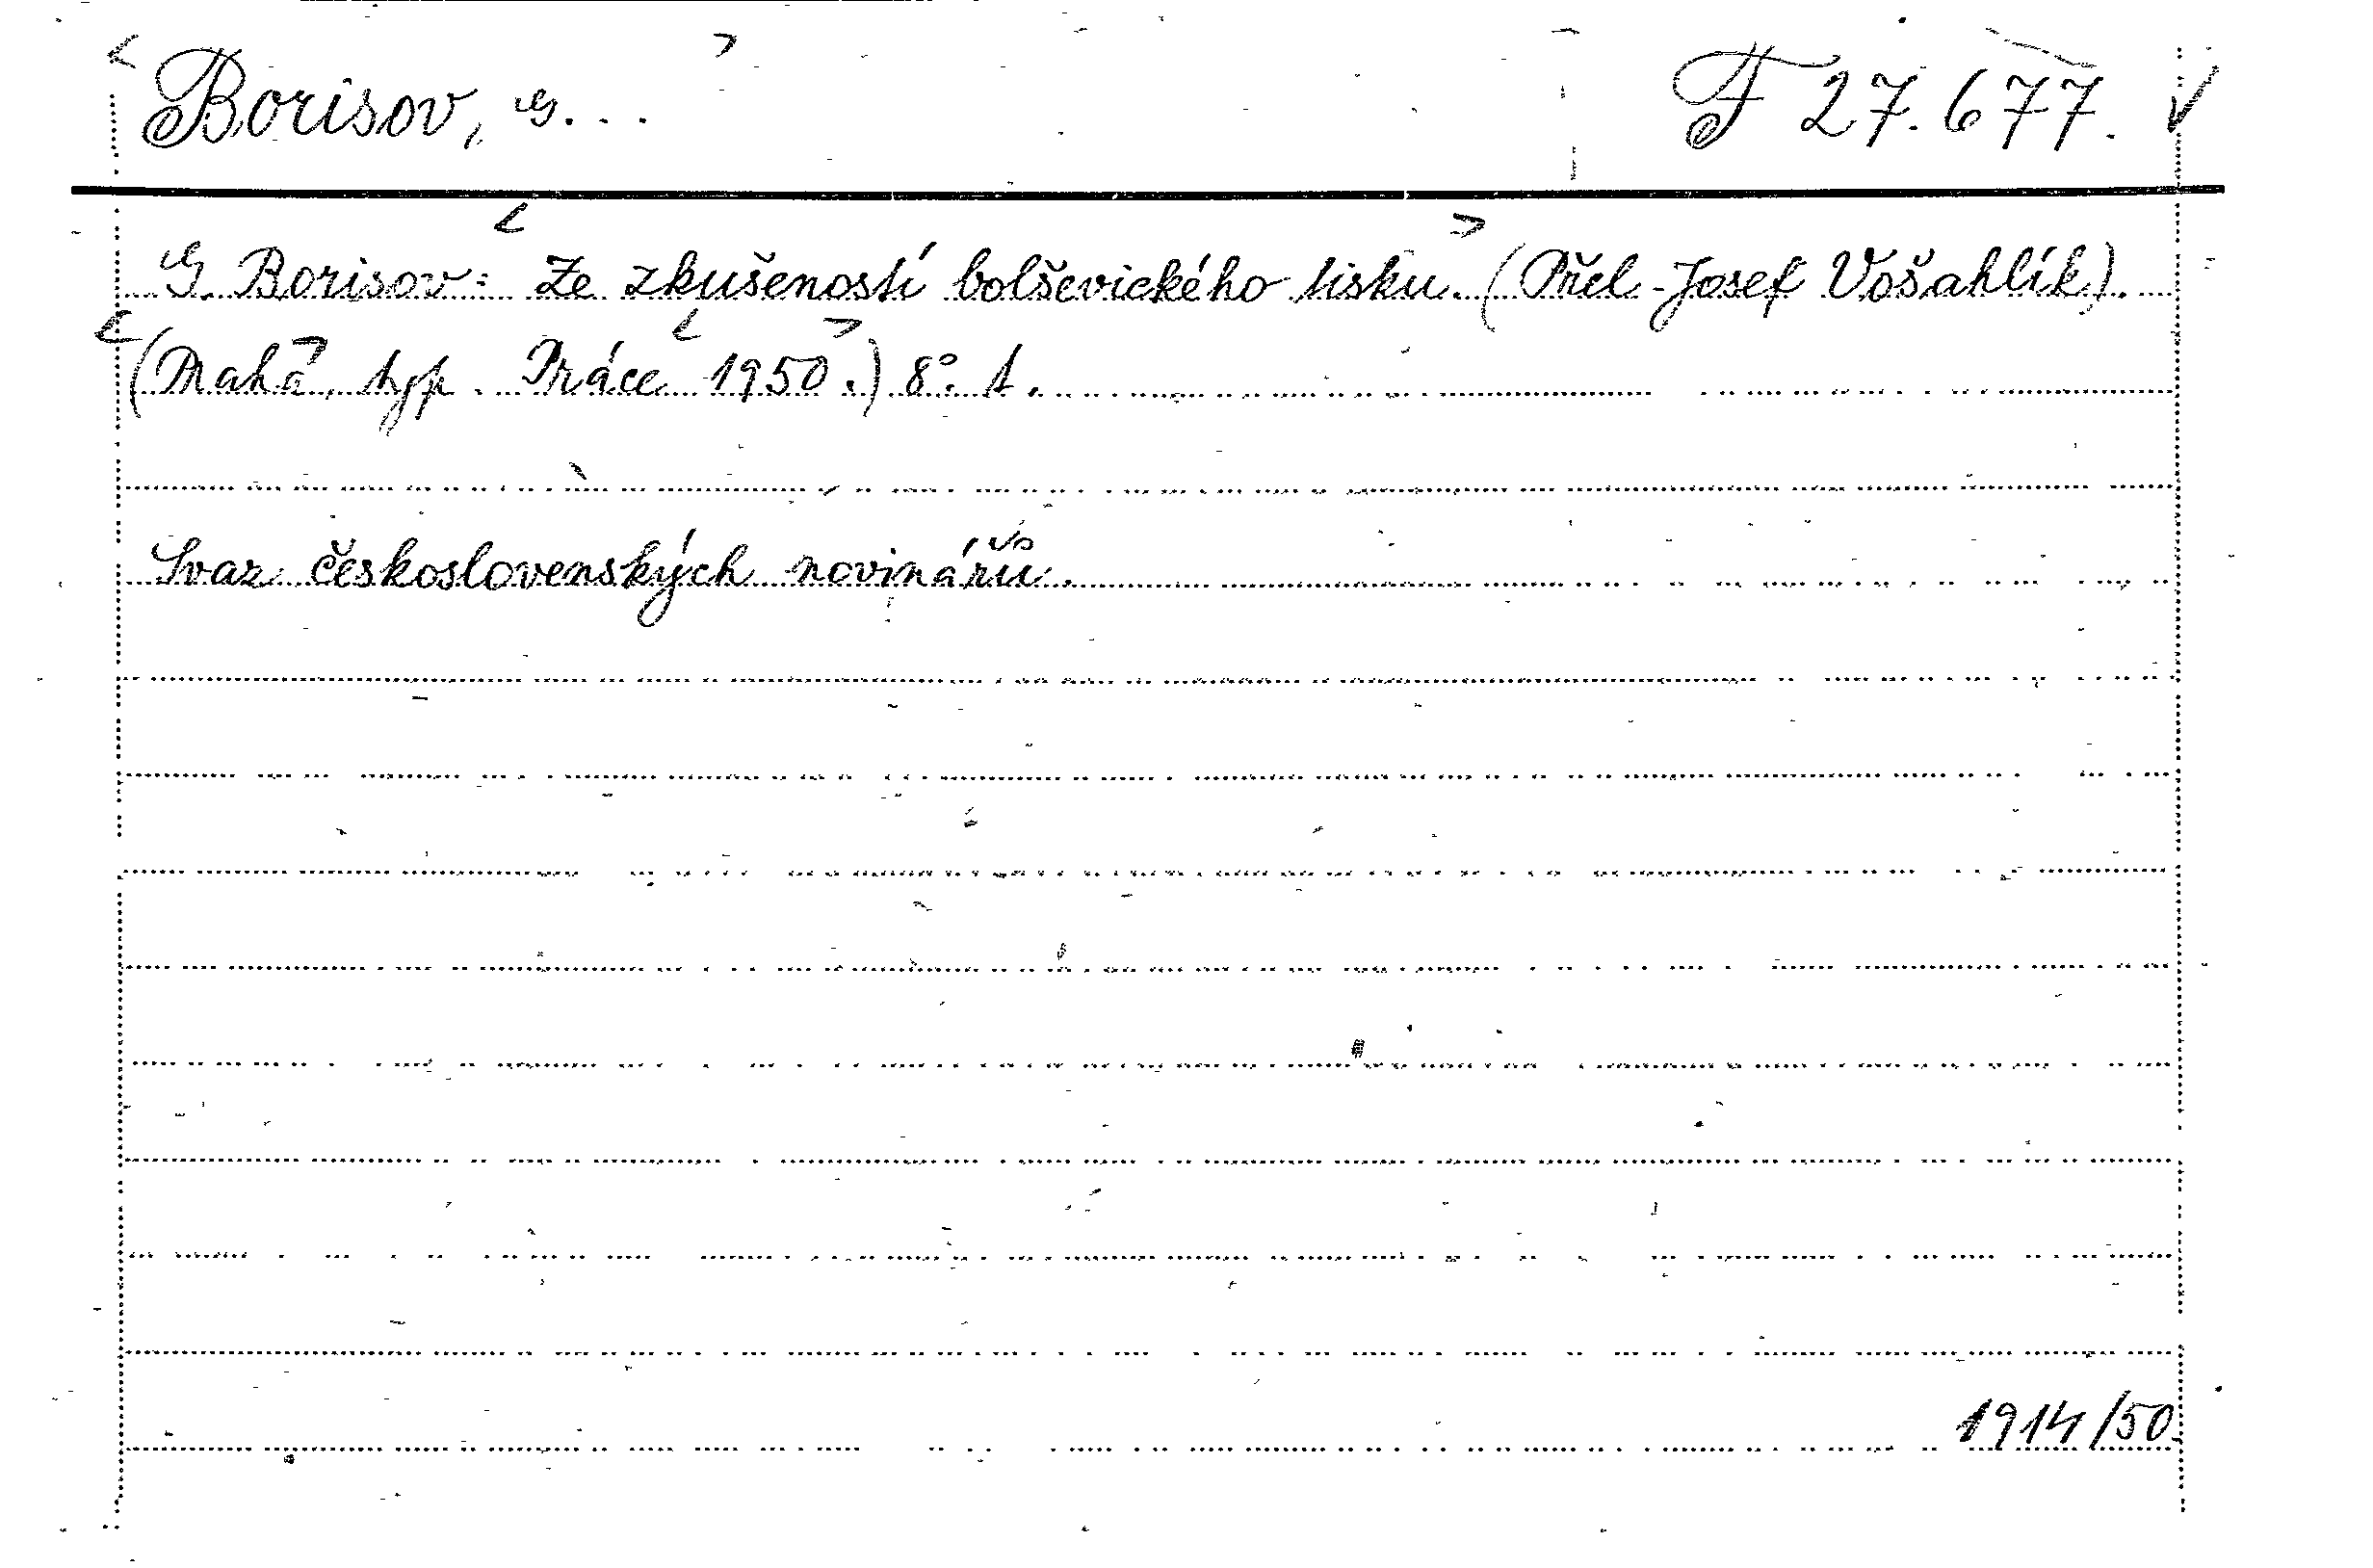 Borisov, G... F 27.677.
G. Borisov: Ze zkušeností bolševického tisku. (Přel. Josef Vošahlík).
(Praha, typ. Práce 1950.) 8°. 1.
Svaz československých novinářů.
1914/50.